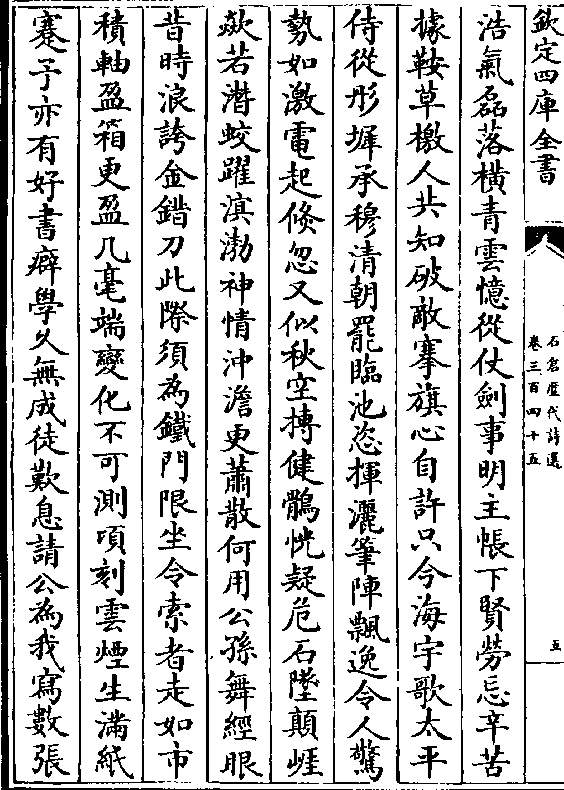 欽定四庫全書
石倉歷代詩選
卷三百四十五
五
浩氣磊落横青雲憶從仗劍事明主帳下賢勞忘辛苦
據鞍草檄人共知破敵搴旗心自許只今海宇歌太平
侍從彤墀承穆清朝罷臨池恣揮灑筆陣飄逸令人驚
勢如激電起倐忽又似秋空摶健鶻恍疑危石墜顛崕
歘若潛蛟躍溟渤神情沖澹更蕭散何用公孫舞經眼
昔時浪誇金錯刀此際須為鐵門限坐令索者走如市
積軸盈箱更盈几毫端變化不可測頃刻雲煙生滿紙
蹇予亦有好書癖學久無成徒歎息請公為我寫數張